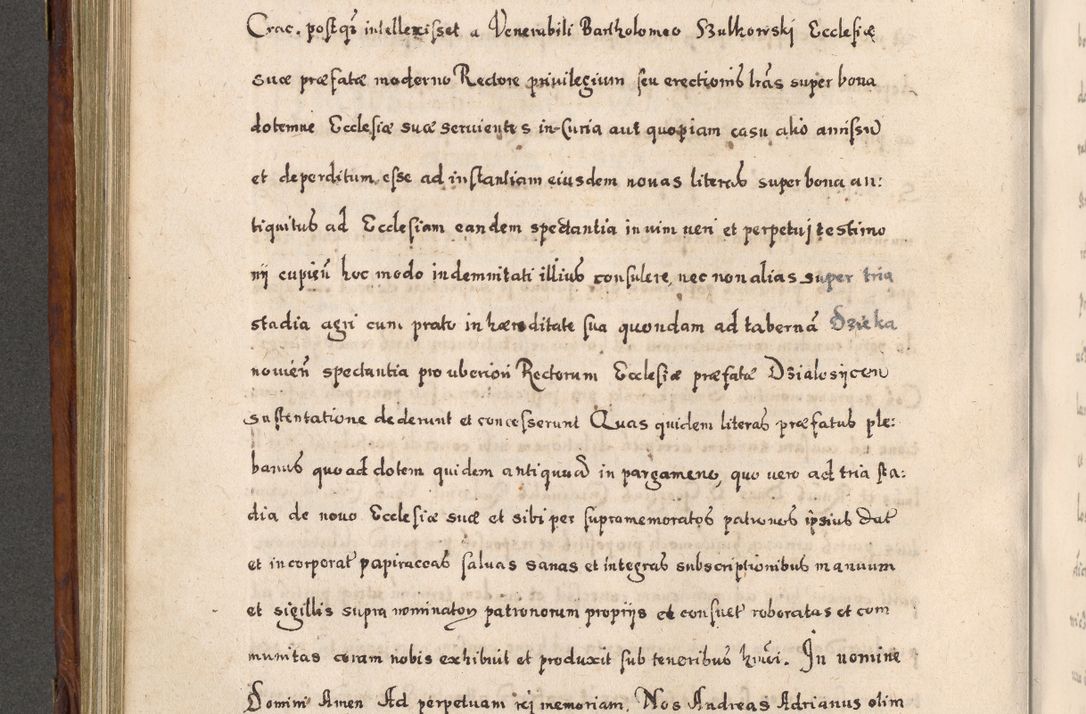 Crac. postq̄ intellexisset a Venerabili Bartholomeo Szulkowski Ecclesiæ
suæ præfatæ moderno Rectore privilegium seu erectionis lr̄as super bona
dotemue Ecclesiæ suæ seruientes in Curia aut quopiam casu alio amissū
et deperditum esse ad instantiam eiusdem nouas literas super bona an:
tiquitus ad Ecclesiam eandem spectantia in uim ueri et perpetuj testimo
nij cupien̄ hoc modo indemnitati illius consulere, nec non alias super tria
stadia agri cum prato in hæreditate sua quondam ad tabernā Dzieka
nouien̄ spectantia pro uberiori Rectorum Ecclesiæ præfatæ Dzialosÿcen
sustentatione dederunt et concesserunt Quas quidem literas præfatus ple:
banus quo ad dotem quidem antiquuā in pargameno, quo uero ad tria sta:
dia de nouo Ecclesiæ suæ et sibi per supramemoratos patronos ipsius dat
et incorporat papiraceas saluas sanas et integras subscriptionibus manuum
et sigillis supra nominatoꝝ patronorum proprijs et consuet roboratas et com
munitas coram nobis exhibuit et produxit sub tenoribus hm̄oi. In nomine
Domini Amen Ad perpetuam rej memoriam. Nos Andreas Adrianus olim